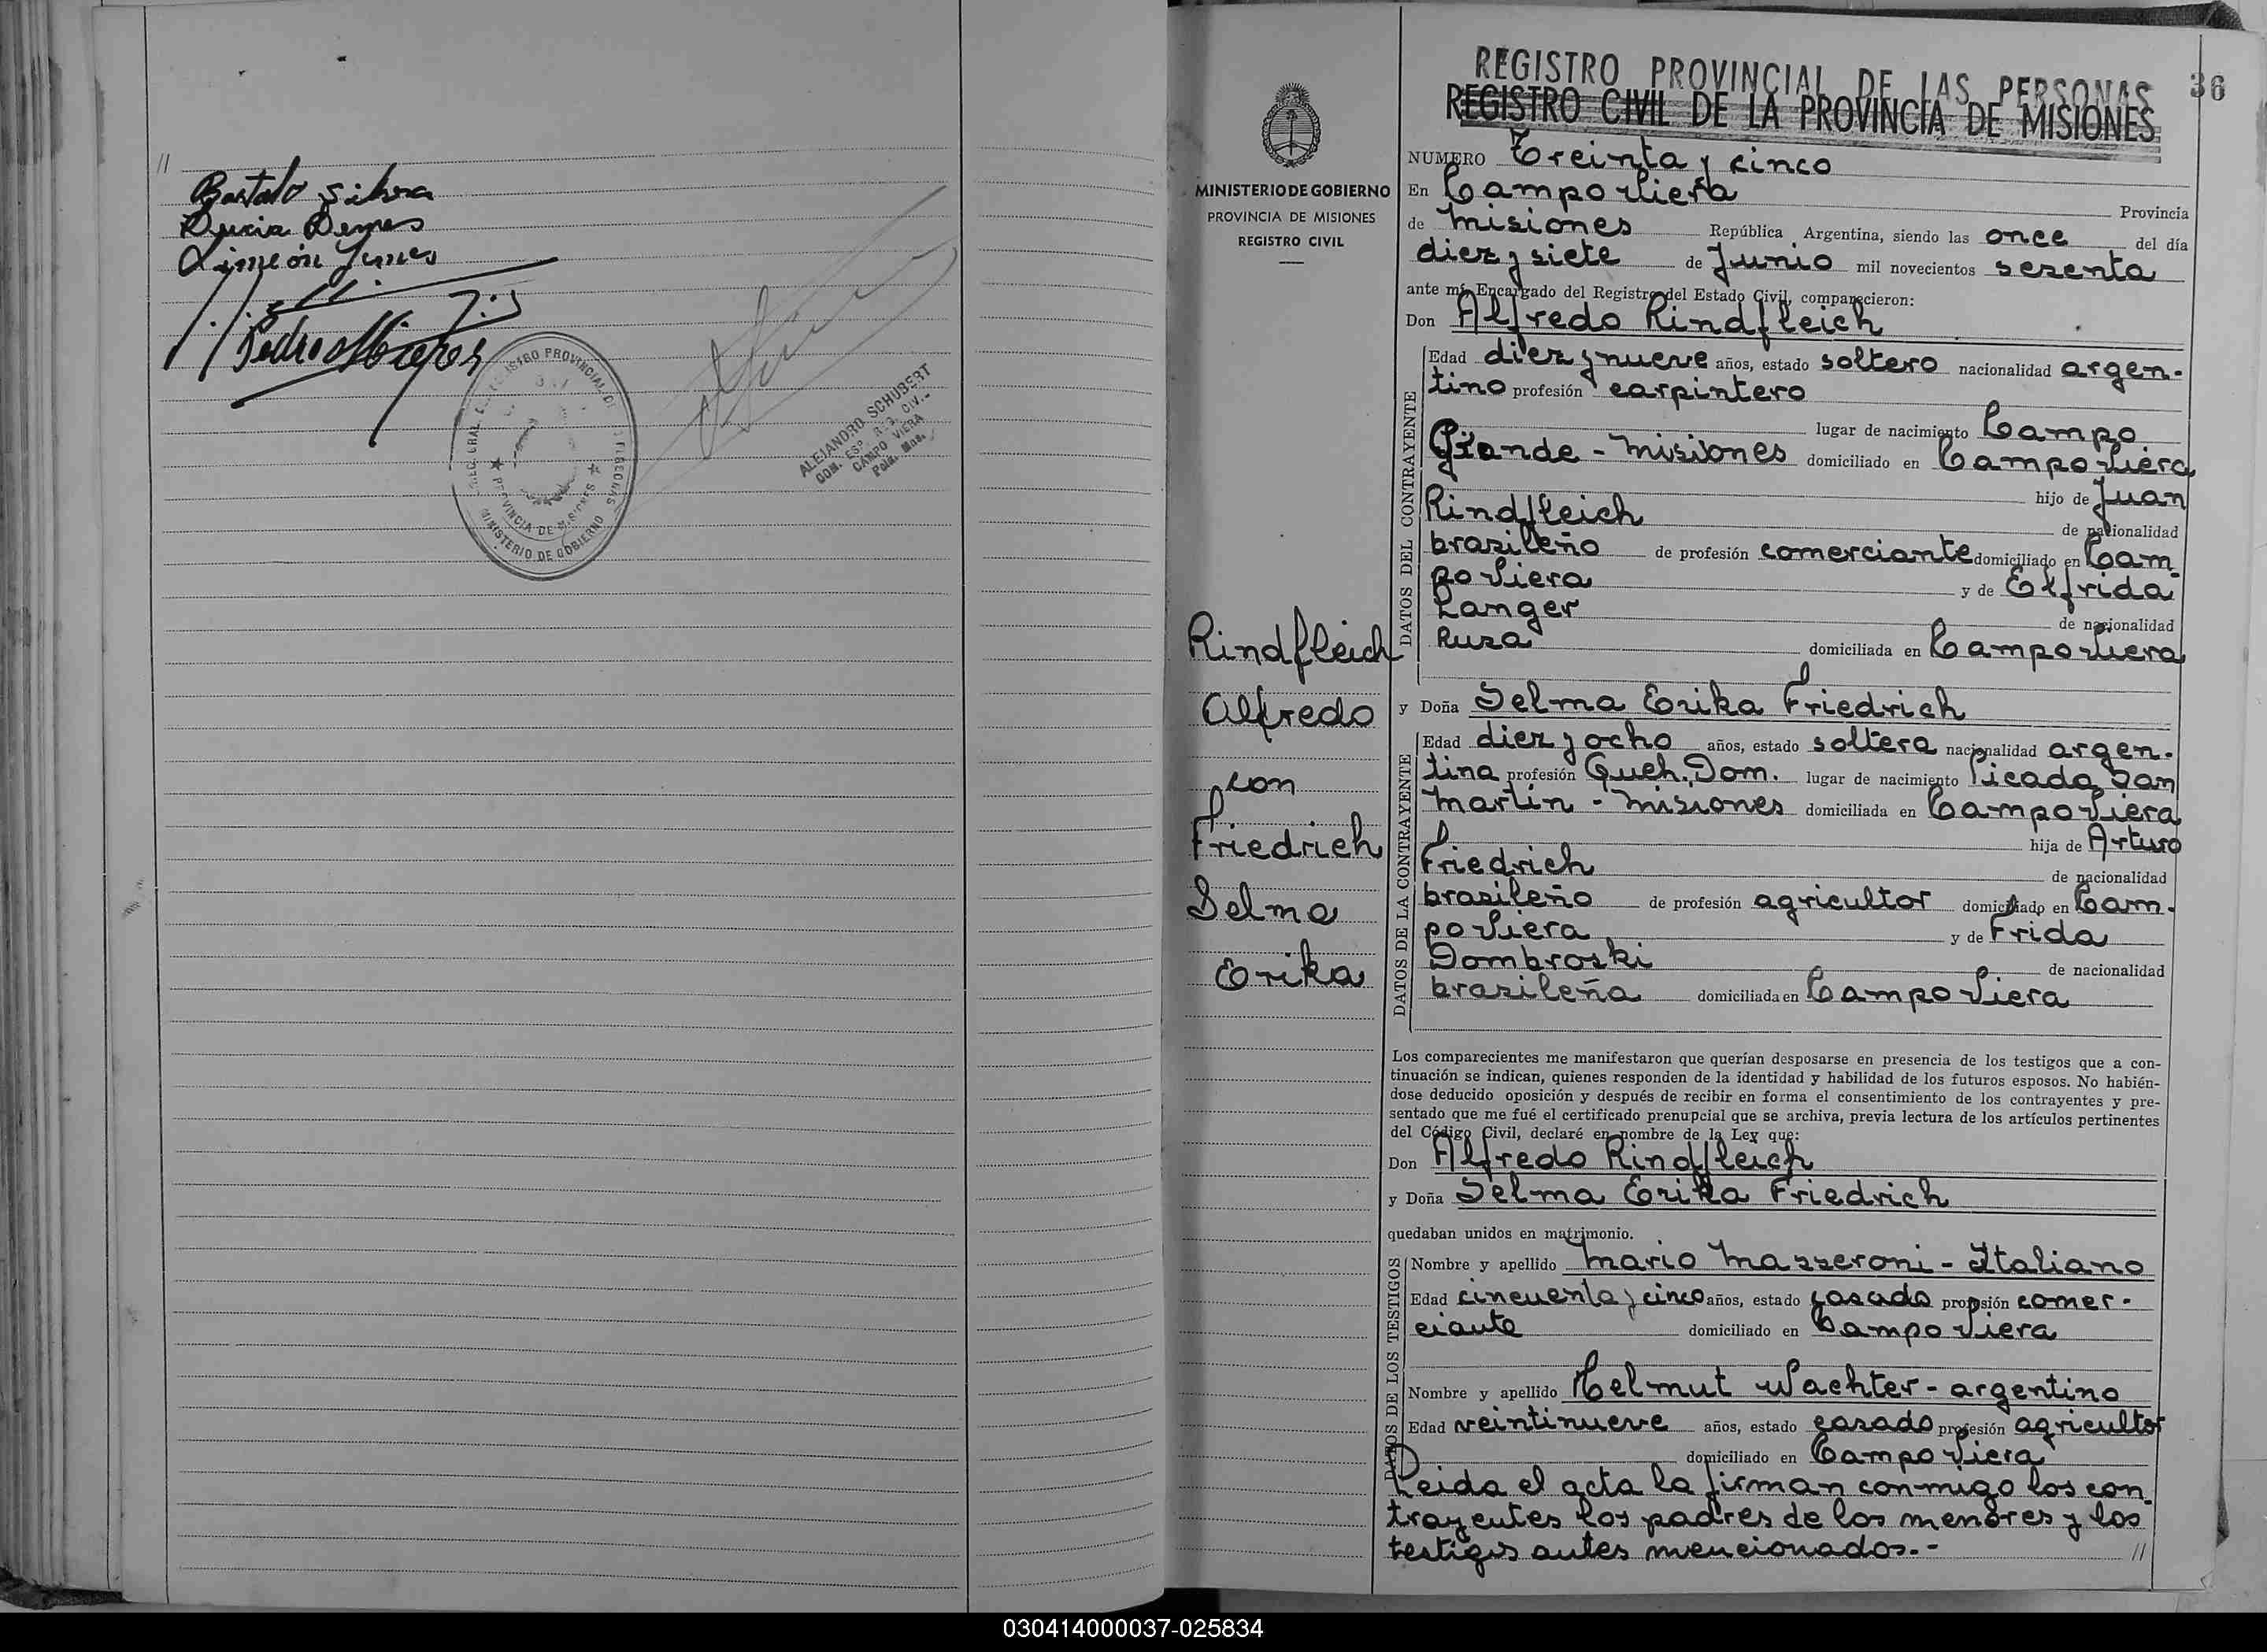 //
Lucia Demes
Simeón
Pedro
MINISTERIO DE GOBIERNO
PROVINCIA DE MISIONES
ALEJANDRO SCHUBERT
CAMPO VIERA
Pcia. Mnes.
36
REGISTRO PROVINCIAL DE LAS PERSONAS
REGISTRO CIVIL DE LA PROVINCIA DE MISIONES
MINISTERIO DE GOBIERNO
PROVINCIA DE MISIONES
REGISTRO CIVIL
Rindfleich
Alfredo
con
Friedrich
Selma
Erika
NUMERO Treinta y cinco
En Campo Viera Provincia
de Misiones República Argentina, siendo las once del día
diez y siete de Junio mil novecientos sesenta
ante mí, Encargado del Registro del Estado Civil, comparecieron:
Don Alfredo Rindfleich
DATOS DEL CONTRAYENTE
Edad diez y nueve años, estado soltero nacionalidad argen-
tino profesión carpintero
lugar de nacimiento Campo
Grande - Misiones domiciliado en Campo Viera
hijo de Juan
Rindfleich de nacionalidad
brasileño de profesión comerciante domiciliado en Cam-
po Viera y de Elfrida
Langer de nacionalidad
Rusa domiciliada en Campo Viera
y Doña Selma Erika Friedrich
DATOS DE LA CONTRAYENTE
Edad diez y ocho años, estado soltera nacionalidad argen-
tina profesión Queh. Dom. lugar de nacimiento Picada San
Martín - Misiones domiciliada en Campo Viera
hija de Arturo
Friedrich de nacionalidad
brasileño de profesión agricultor domiciliado en Cam-
po Viera y de Frida
Dombroski de nacionalidad
brasileña domiciliada en Campo Viera
Los comparecientes me manifestaron que querían desposarse en presencia de los testigos que a con-
tinuación se indican, quienes responden de la identidad y habilidad de los futuros esposos. No habién-
dose deducido oposición y después de recibir en forma el consentimiento de los contrayentes y pre-
sentado que me fué el certificado prenupcial que se archiva, previa lectura de los artículos pertinentes
del Código Civil, declaré en nombre de la Ley que:
Don Alfredo Rindfleich
y Doña Selma Erika Friedrich
quedaban unidos en matrimonio.
DATOS DE LOS TESTIGOS
Nombre y apellido Mario Mazzeroni - Italiano
Edad cincuenta y cinco años, estado casado profesión comer-
ciante domiciliado en Campo Viera
Nombre y apellido Helmut Wachter - argentino
Edad veintinueve años, estado casado profesión agricultor
domiciliado en Campo Viera
Leida el acta la firman conmigo los con-
trayentes los padres de los menores y los
testigos antes mencionados.-
//
030414000037-025834